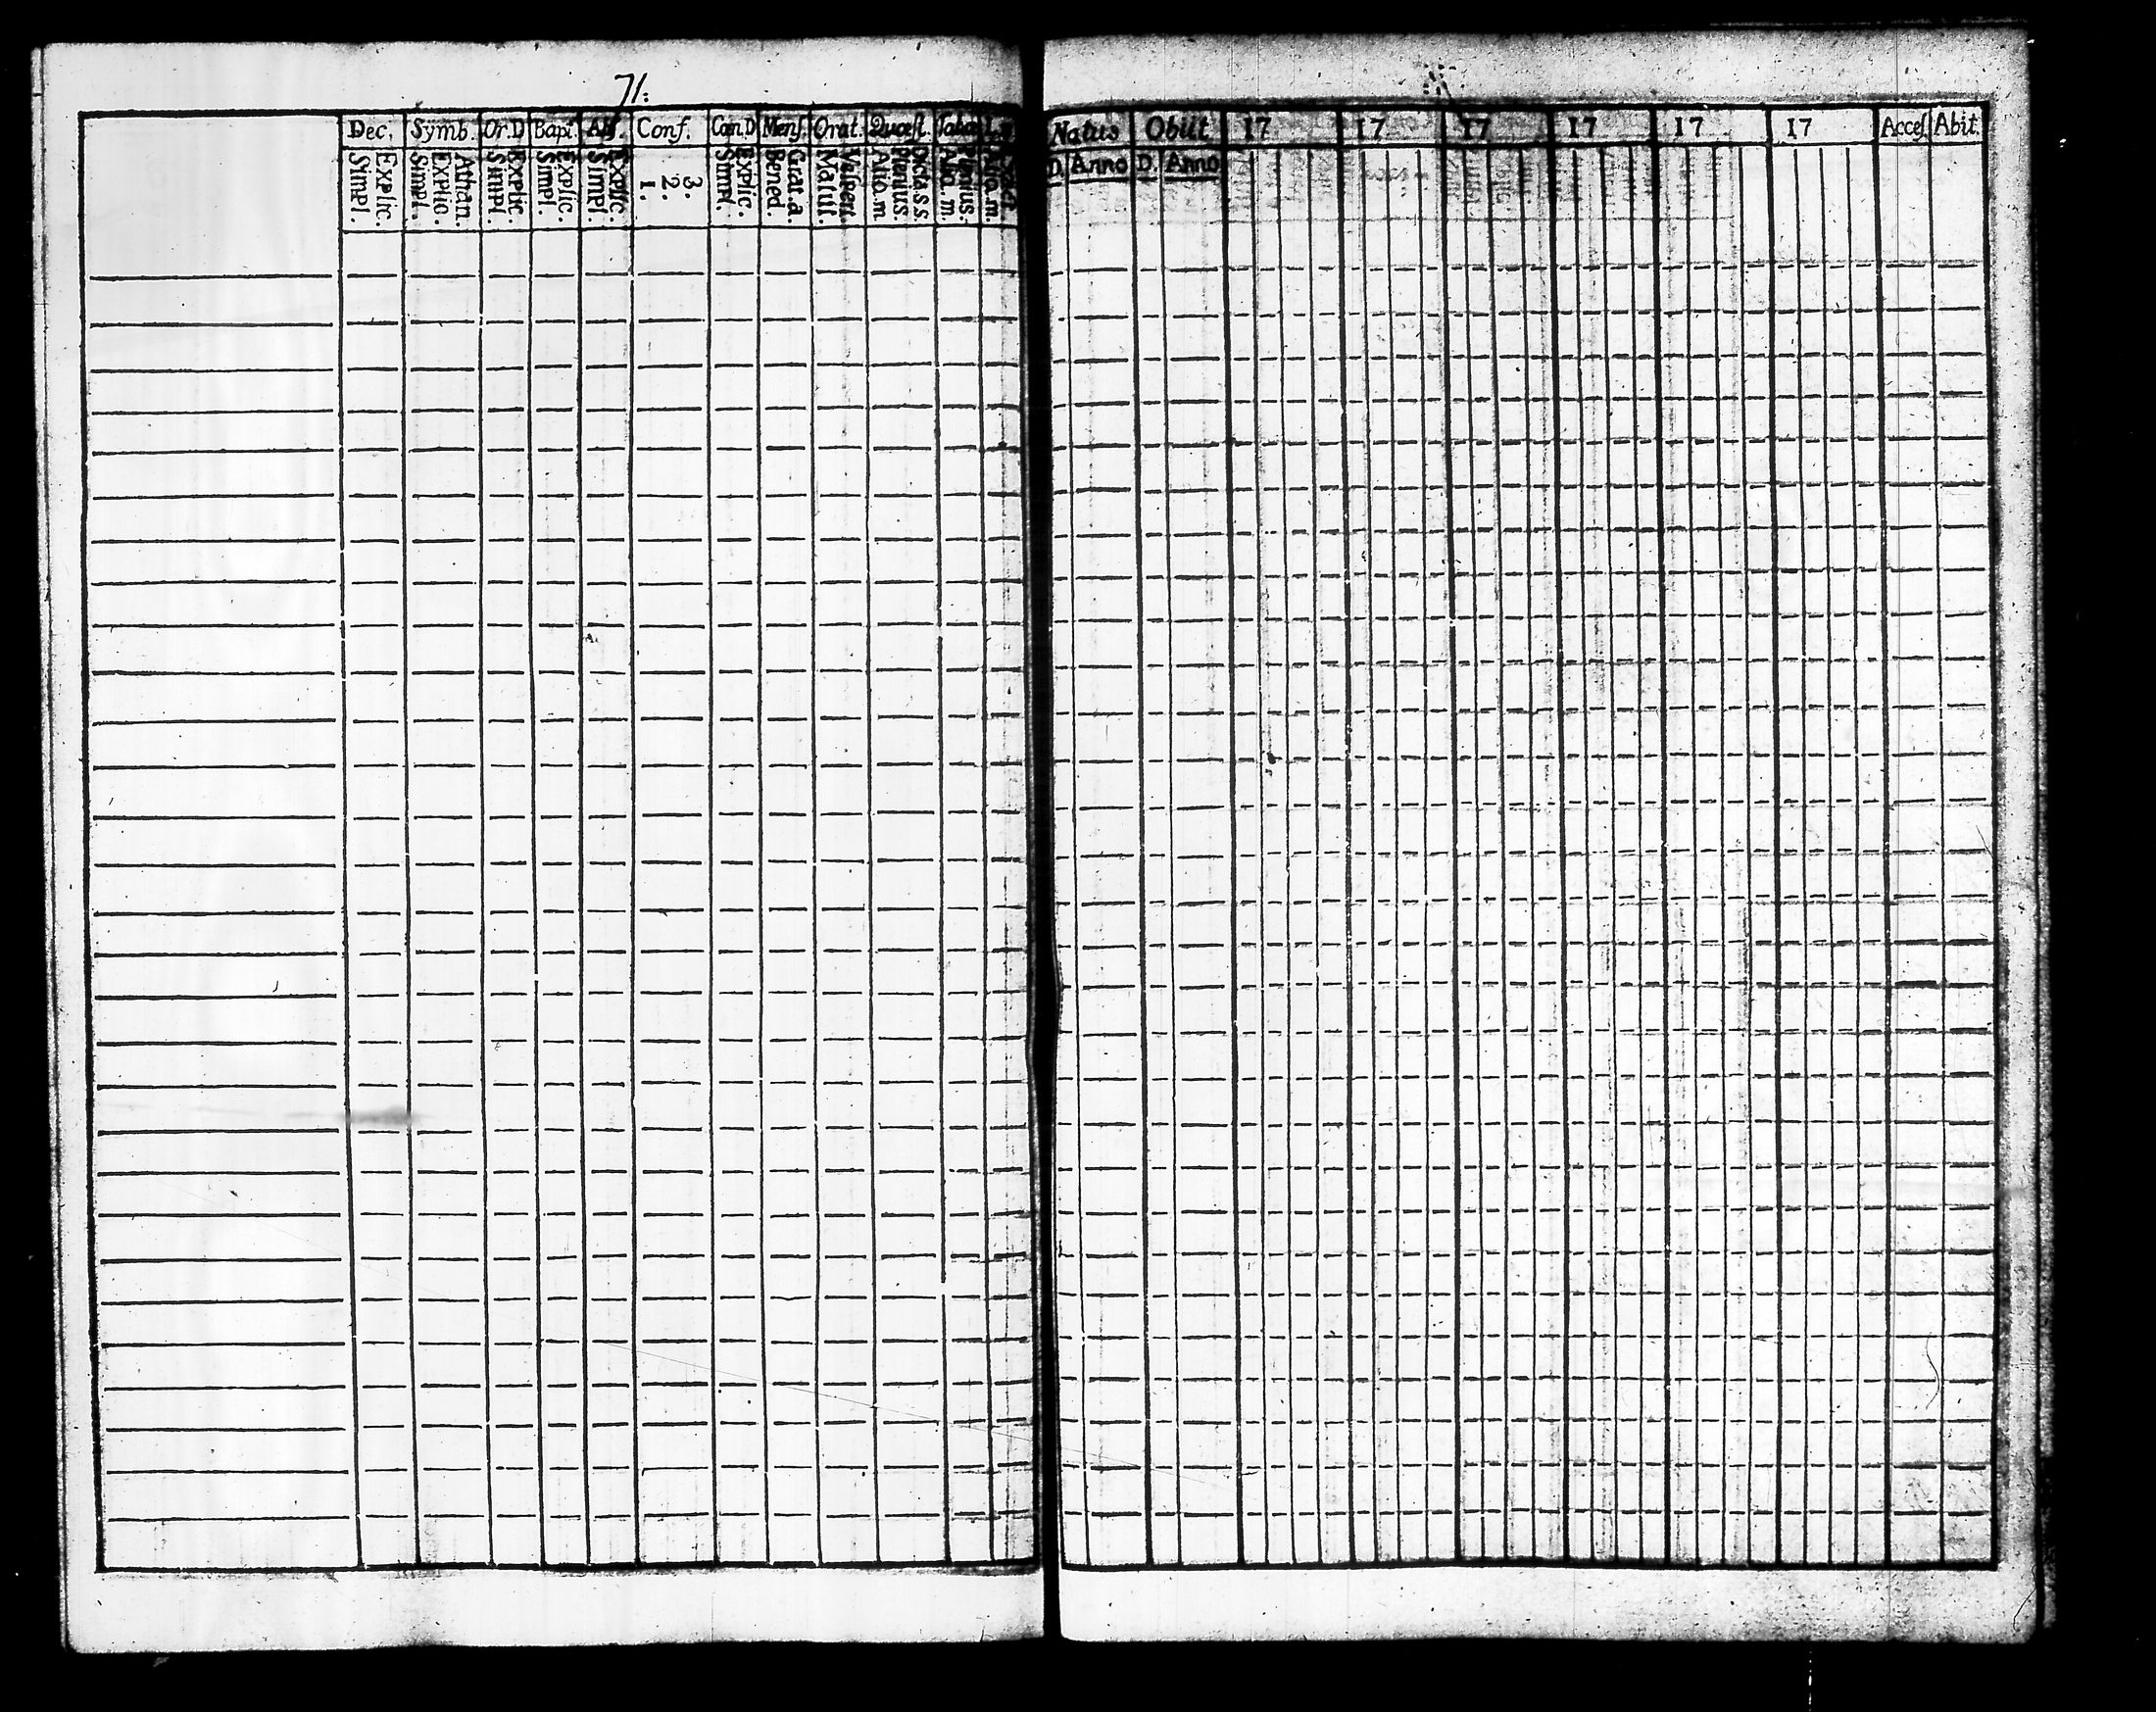 71.
Dec. Symb. Or.D Bapt. Abs. Conf. Cœn.D Mens. Orat. Quæst. Tabæ
Explic. Simpl.
Athan. Explic. Simpl.
Explic. Simpl.
Explic. Simpl.
Explic. Simpl.
3. 2. 1.
Explic. Simpl.
Grat. a. Bened.
Vespert. Matut.
Dicta s s. Plenius. Aliq. m.
Plenius. Aliq. m.
Aliq. m.
Natus Obiit 17 17 17 17 17 17 Acces. Abit.
D. Anno D. Anno